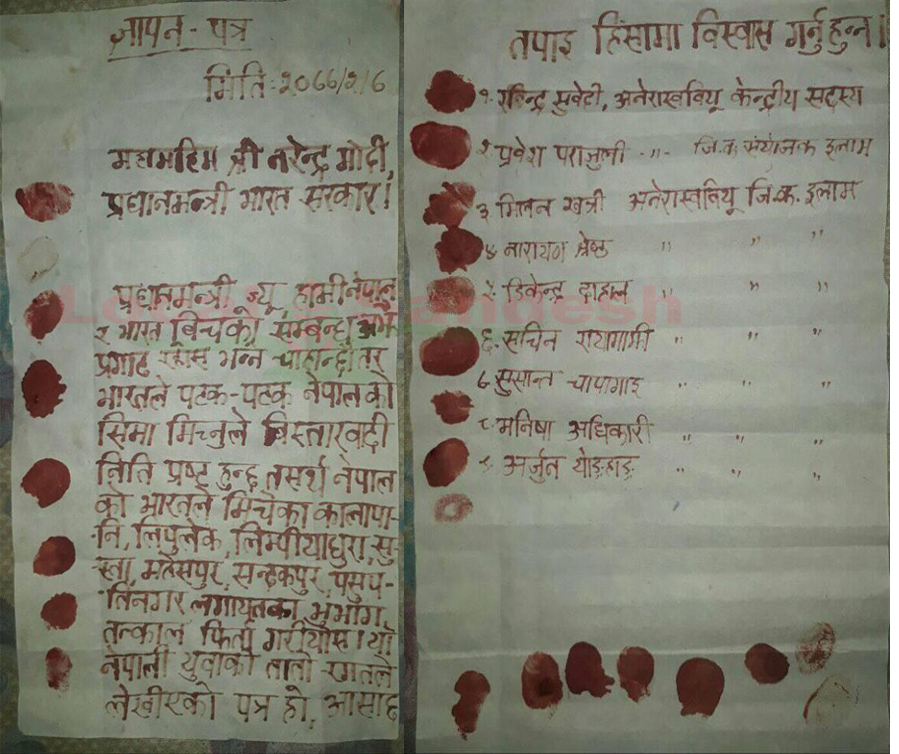 ज्ञापन - पत्र
मिति:-२०७७/२/७
महामहिम श्री नरेन्द्र मोदी,
प्रधानमन्त्री भारत सरकार।
प्रधानमन्त्री ज्यू हामी नेपाल
र भारत बिचको सम्बन्ध अझै
प्रगाढ रहोस भन्न चाहान्छौ तर्
भारतले पटक-पटक नेपालको
सिमा मिच्नुले बिस्तारवादी
निति प्रष्ट हुन्छ तसर्थ नेपाल
को भारतले मिचेका कालापा-
नि, लिपुलेक, लिम्पीयाधुरा, सु-
स्ता, महेसपुर, सन्दकपुर, पसुप-
तिनगर लगायतका भुभाग
तत्काल फिर्ता गरीयोस। यो
नेपाली युवाको तातो रगतले
लेखीएको पत्र हो, आसाछ
तपाइ हिंसामा विस्वास गर्नुहुन्न।
१. रविन्द्र सुवेदी, अनेरास्ववियू केन्द्रीय सदस्य
२. प्रवेश पराजुली -॥- जि.क. संयोजक इलाम
३. मिलन खत्री अनेरास्ववियू जि.क. इलाम
४. नारायण श्रेष्ठ ,, ,, ,,
५. डिकेन्द्र दाहाल ,, ,, ,,
६. सचिन रायामाझी ,, ,, ,,
७. सुसान्त चापागाइ ,, ,, ,,
८. मनिषा अधिकारी ,, ,, ,,
९. अर्जुन योङहाङ ,, ,, ,,